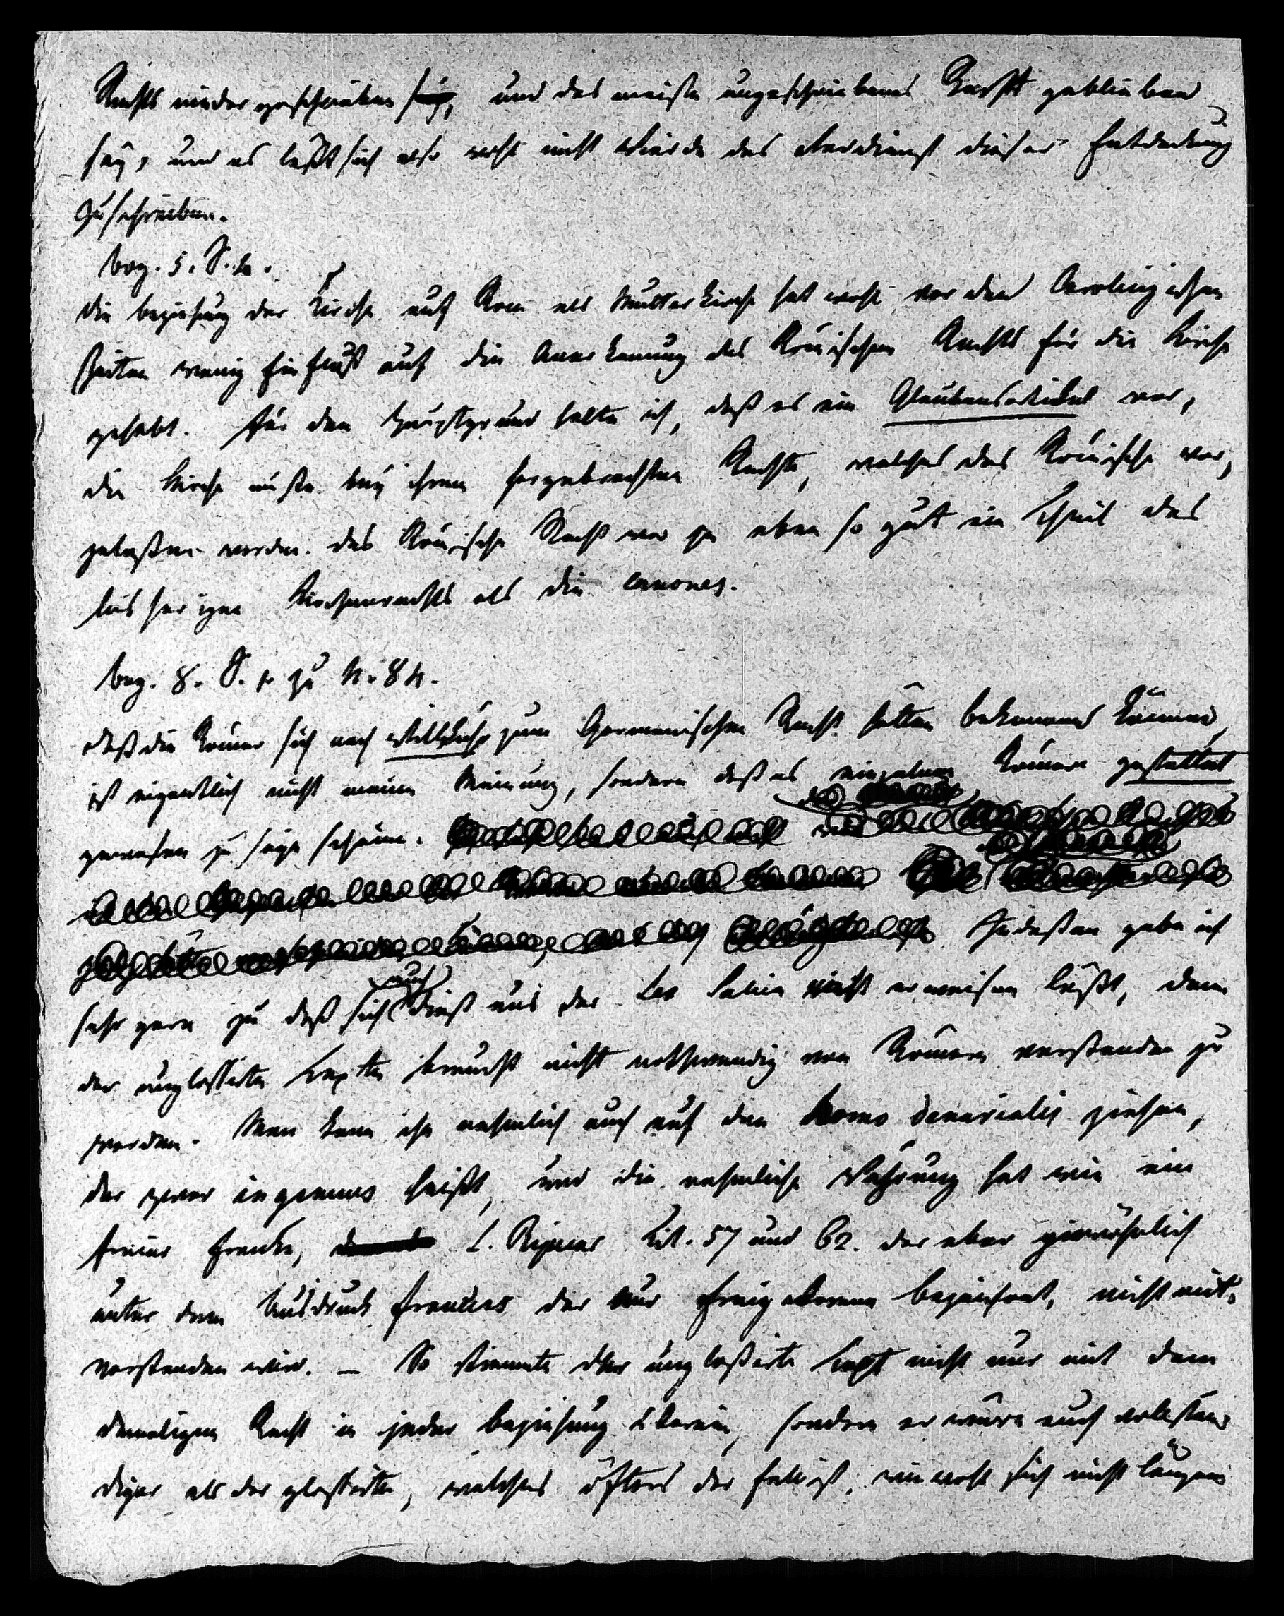 Rechts niedergeschrieben sey, und das meiste ungeschriebenes Recht geblieben
sey, und es läßt sich also wohl nicht Biener das Verdienst dieser Entdeckung
zuschreiben.
Bog. 5. S. 4.
die beziehung der Kirche auf Rom als Mutterkirche hat wohl vor den Carolingischen
Zeiten wenig Einfluß auf die Anerkennung des Römischen Rechts für die Kirche
gehabt. Für den Hauptgrund halte ich, daß es ein Glaubensartikel war,
die Kirche müße bey ihrem hergebrachten Rechte, welches das Römische war,
gelaßen werden. das Römische Recht war ja eben so gut ein Theil des
bisherigen Kirchenrechts als die canones.
Bog. 8. S. 1. zu N. 84.
daß die Römer sich nach Willkühr zum Germanischen Recht hätten bekennen können,
ist eigentlich nicht meine Meinung, sondern daß es einzelnen Römern gestattet
gewesen zu seyn scheine. Indeßen gebe ich
sehr gern zu daß sich auch dieß aus der Lex Salica nicht erweisen läßt, denn
der unglossirte Text braucht nicht nothwendig von Römern verstanden zu
werden. Man kann ihn nehmlich auch auf den homo denarialis ziehen,
der zwar ingenuus heißt, und die nehmliche Währung hat wie ein
freier Franke, L. Ripuar Tit. 57 und 62. der aber gewöhnlich
unter dem Ausdruck francus der nur Freigeborene bezeichnet, nicht mit
verstanden wird. – So stimmte der unglossirte Text nicht nur mit dem
damaligen Recht in jeder beziehung überein, sondern er wäre auch vollstän-
diger als der glossirte, welches öfters der Fall ist, wie wohl sich nicht läugnen